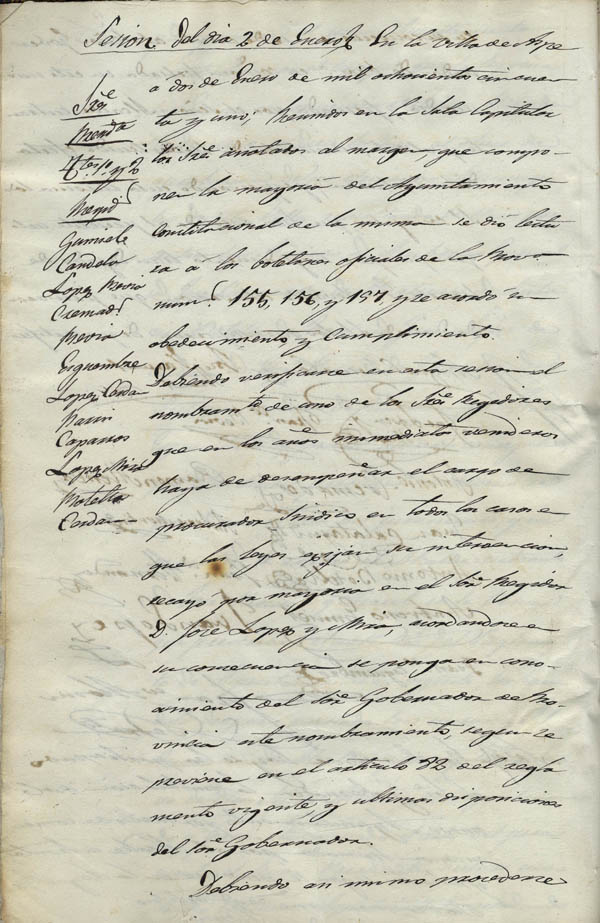 Sesion del dia 2 de Enero En la villa de Aspe
á dos de Enero de mil ochocientos cincuen
ta y uno; Reunidos en la Sala Capitular
los Sres. anotados al margen, que compo
nen la mayoria del Ayuntamiento
Constitucional de la misma se dió lectu
ra á los boletines oficiales de la Prova.
num.s 155, 156, y 157, y se acordó su
obedecimiento y Cumplimiento.
Debiendo verificarse en esta sesion el
nombramto. de uno de los Sres. Regidores
que en los años inmediatos venideros
haya de desempeñar el cargo de
procurador Sindico en todos los casos en
que las leyes exijan su intervencion,
recayo por mayoria en el Sor. Regidor
D. Jose Lopez y Mira, acordandose en
su consecuencia se ponga en cono
cimiento del Sor. Gobernador de Pro
vincia este nombramiento, segun se
previene en el articulo 82 del regla
mento vigente, y ultimas disposiciones
del Sor. Gobernador.
Debiendo asi mismo procederse
Sres.
Ttes. 1o. y 2o.
Regid.s
Gumiel
Candela
Lopez
Cremad.s
Lopez Cerdan
Pavia
Caparros
Lopez Mira
Botella
Cerdan